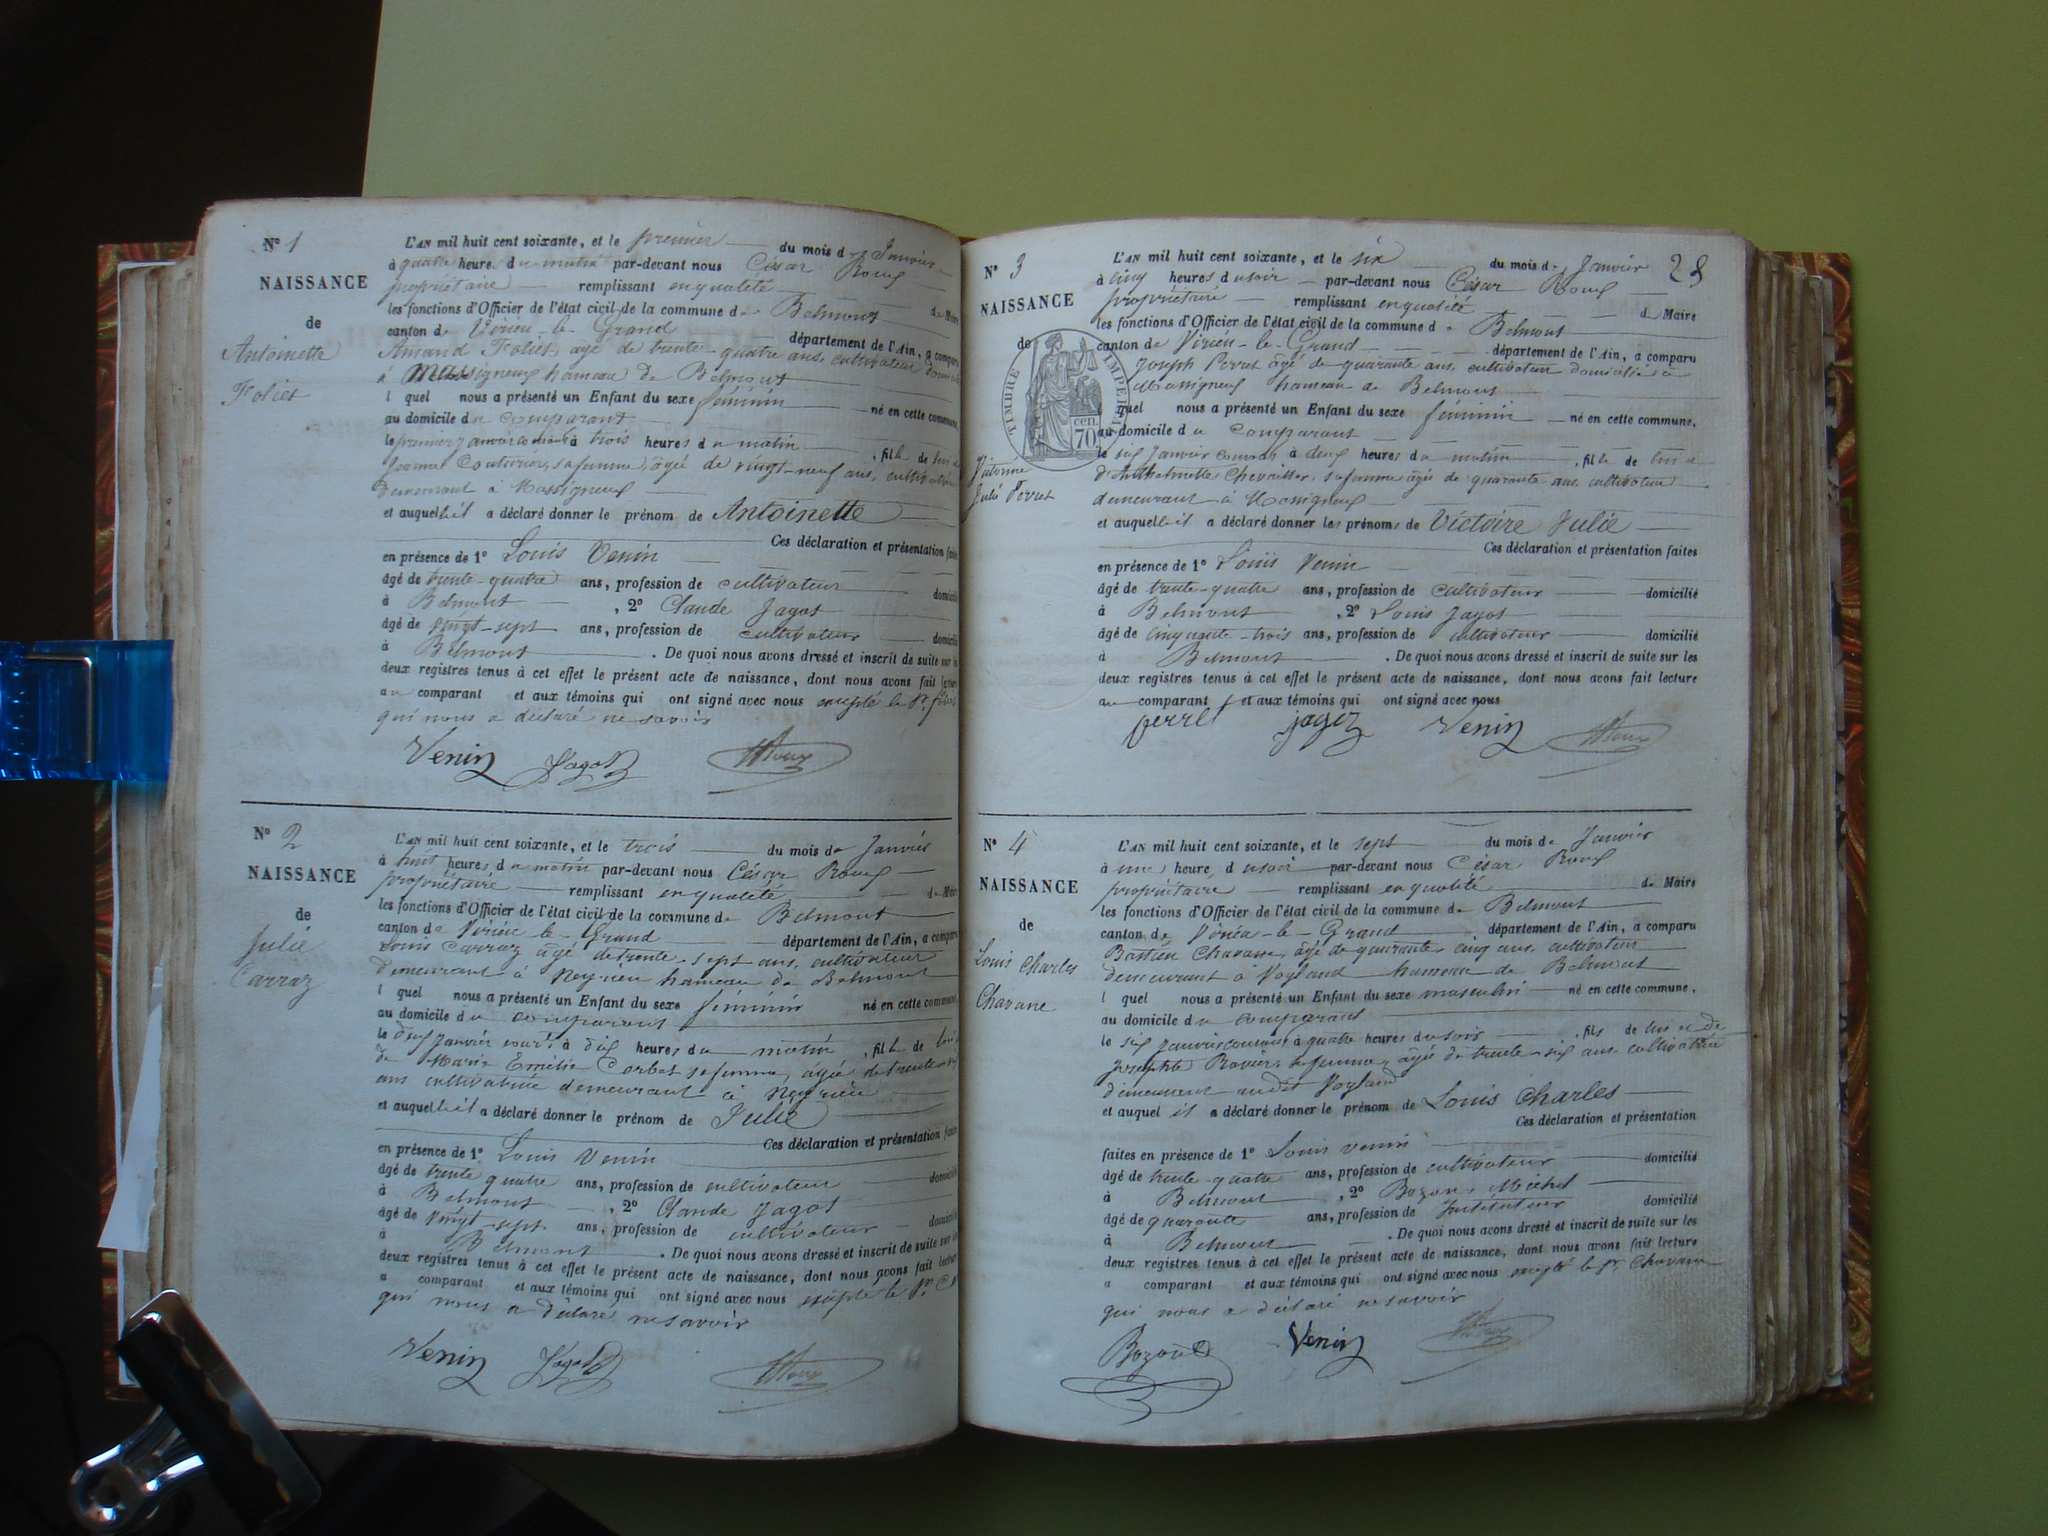 N° 1
NAISSANCE
de
Antoinette
Foliet
L'AN mil huit cent soixante, et le premier du mois de Janvier
à quatre heures du matin par-devant nous César Roux
propriétaire remplissant en qualité de Maire
les fonctions d'Officier de l'état civil de la commune de Belmont
canton de Virieu-le-Grand département de l'Ain, a comparu
Amand Foliet, agé de trente-quatre ans, cultivateur
à Massigneux hameau de Belmont
l quel nous a présenté un Enfant du sexe féminin né en cette commune,
au domicile du comparant
le premier janvier à trois heures du matin, fille de lui
sa femme, âgée de vingt-neuf ans,
demeurant à Massigneux
et auquel il a déclaré donner le prénom de Antoinette
Ces déclaration et présentation faites
en présence de 1° Louis Venin
âgé de trente-quatre ans, profession de cultivateur domicilié
à Belmont, 2° Claude Jagot
âgé de vingt-sept ans, profession de cultivateur domicilié
à Belmont. De quoi nous avons dressé et inscrit de suite sur les
deux registres tenus à cet effet le présent acte de naissance, dont nous avons fait lecture
au comparant et aux témoins qui ont signé avec nous excepté le Sr
qui nous a déclaré ne savoir
Venin Jagot Roux
N° 2
NAISSANCE
de
Julie
Carraz
L'AN mil huit cent soixante, et le trois du mois de Janvier
à huit heures du matin par-devant nous César Roux
propriétaire remplissant en qualité de Maire
les fonctions d'Officier de l'état civil de la commune de Belmont
canton de Virieu-le-Grand département de l'Ain, a comparu
Louis Carraz âgé de trente-sept ans, cultivateur
demeurant à Neyrieu hameau de Belmont
l quel nous a présenté un Enfant du sexe féminin né en cette commune,
au domicile du comparant
le deux janvier à dix heures du matin, fille de lui
de Marie Emélie sa femme, âgée de trente
ans cultivatrice demeurant à Neyrieu
et auquel il a déclaré donner le prénom de Julie
Ces déclaration et présentation faites
en présence de 1° Louis Venin
âgé de trente quatre ans, profession de cultivateur domicilié
à Belmont, 2° Claude Jagot
âgé de vingt-sept ans, profession de cultivateur domicilié
à Belmont. De quoi nous avons dressé et inscrit de suite sur les
deux registres tenus à cet effet le présent acte de naissance, dont nous avons fait lecture
a comparant et aux témoins qui ont signé avec nous excepté le Sr
qui nous a déclaré ne savoir
Venin Jagot Roux
28
N° 3
NAISSANCE
de
TIMBRE IMPERIAL
70 cen.
Victoire
Julie Perret
L'AN mil huit cent soixante, et le six du mois de Janvier
à cinq heures du soir par-devant nous César Roux
propriétaire remplissant en qualité de Maire
les fonctions d'Officier de l'état civil de la commune de Belmont
canton de Virieu-le-Grand département de l'Ain, a comparu
Joseph Perret âgé de quarante ans, cultivateur domicilié à
Massigneux hameau de Belmont
l quel nous a présenté un Enfant du sexe féminin né en cette commune,
au domicile du comparant
le six Janvier courant à deux heures du matin, fille de lui et
d'Anthelmette sa femme âgée de quarante ans
demeurant à Massigneux
et auquel il a déclaré donner les prénoms de Victoire Julie
Ces déclaration et présentation faites
en présence de 1° Louis Venin
âgé de trente-quatre ans, profession de cultivateur domicilié
à Belmont, 2° Louis Jagot
âgé de cinquante-trois ans, profession de cultivateur domicilié
à Belmont. De quoi nous avons dressé et inscrit de suite sur les
deux registres tenus à cet effet le présent acte de naissance, dont nous avons fait lecture
au comparant et aux témoins qui ont signé avec nous
perret jagot Venin Roux
N° 4
NAISSANCE
de
Louis Charles
Chavane
L'AN mil huit cent soixante, et le sept du mois de Janvier
à une heure du soir par-devant nous César Roux
propriétaire remplissant en qualité de Maire
les fonctions d'Officier de l'état civil de la commune de Belmont
canton de Virieu-le-Grand département de l'Ain, a comparu
Bastien Chavane, âgé de quarante-cinq ans, cultivateur
demeurant à Vogland hameau de Belmont
l quel nous a présenté un Enfant du sexe masculin né en cette commune,
au domicile du comparant
le six janvier courant à quatre heures du soir, fils de lui et de
Josephte sa femme, âgée de trente-six ans cultivatrice
demeurant audit Vogland
et auquel il a déclaré donner le prénom de Louis Charles
Ces déclaration et présentation
faites en présence de 1° Louis Venin
âgé de trente-quatre ans, profession de cultivateur domicilié
à Belmont, 2° Bozon, Michel
âgé de quarante ans, profession de Instituteur domicilié
à Belmont. De quoi nous avons dressé et inscrit de suite sur les
deux registres tenus à cet effet le présent acte de naissance, dont nous avons fait lecture
a comparant et aux témoins qui ont signé avec nous excepté le Sr Chavane
qui nous a déclaré ne savoir
Bozon Venin Roux